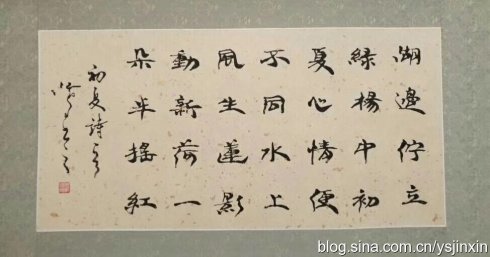 湖邊佇立
綠楊中初
夏心情便
不同水上
風生蓮影
動新荷一
朵半搖紅
初夏詩一首
blog.sina.com.cn/ysjinxin